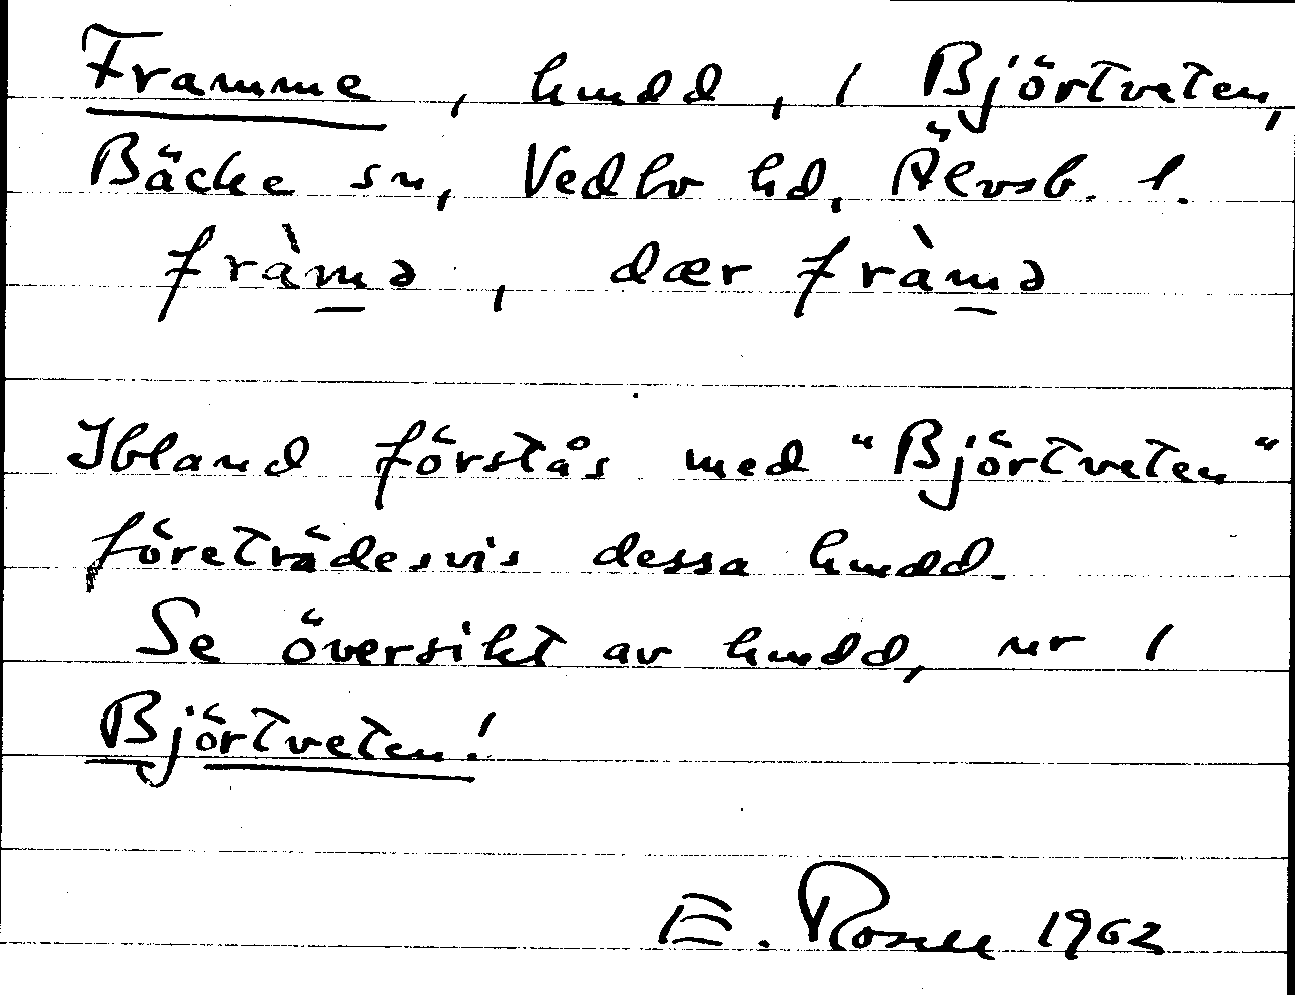 Framme, hmdd, 1 Björtveten,
Bäcke sn, Vedbo hd, Älvsb. l.
fràm̲ə, dær fràm̲ə
Ibland förstås med "Björtveten"
företrädesvis dessa hmdd.
Se översikt av hmdd, nr 1
Björtveten!
E. Rosell 1962